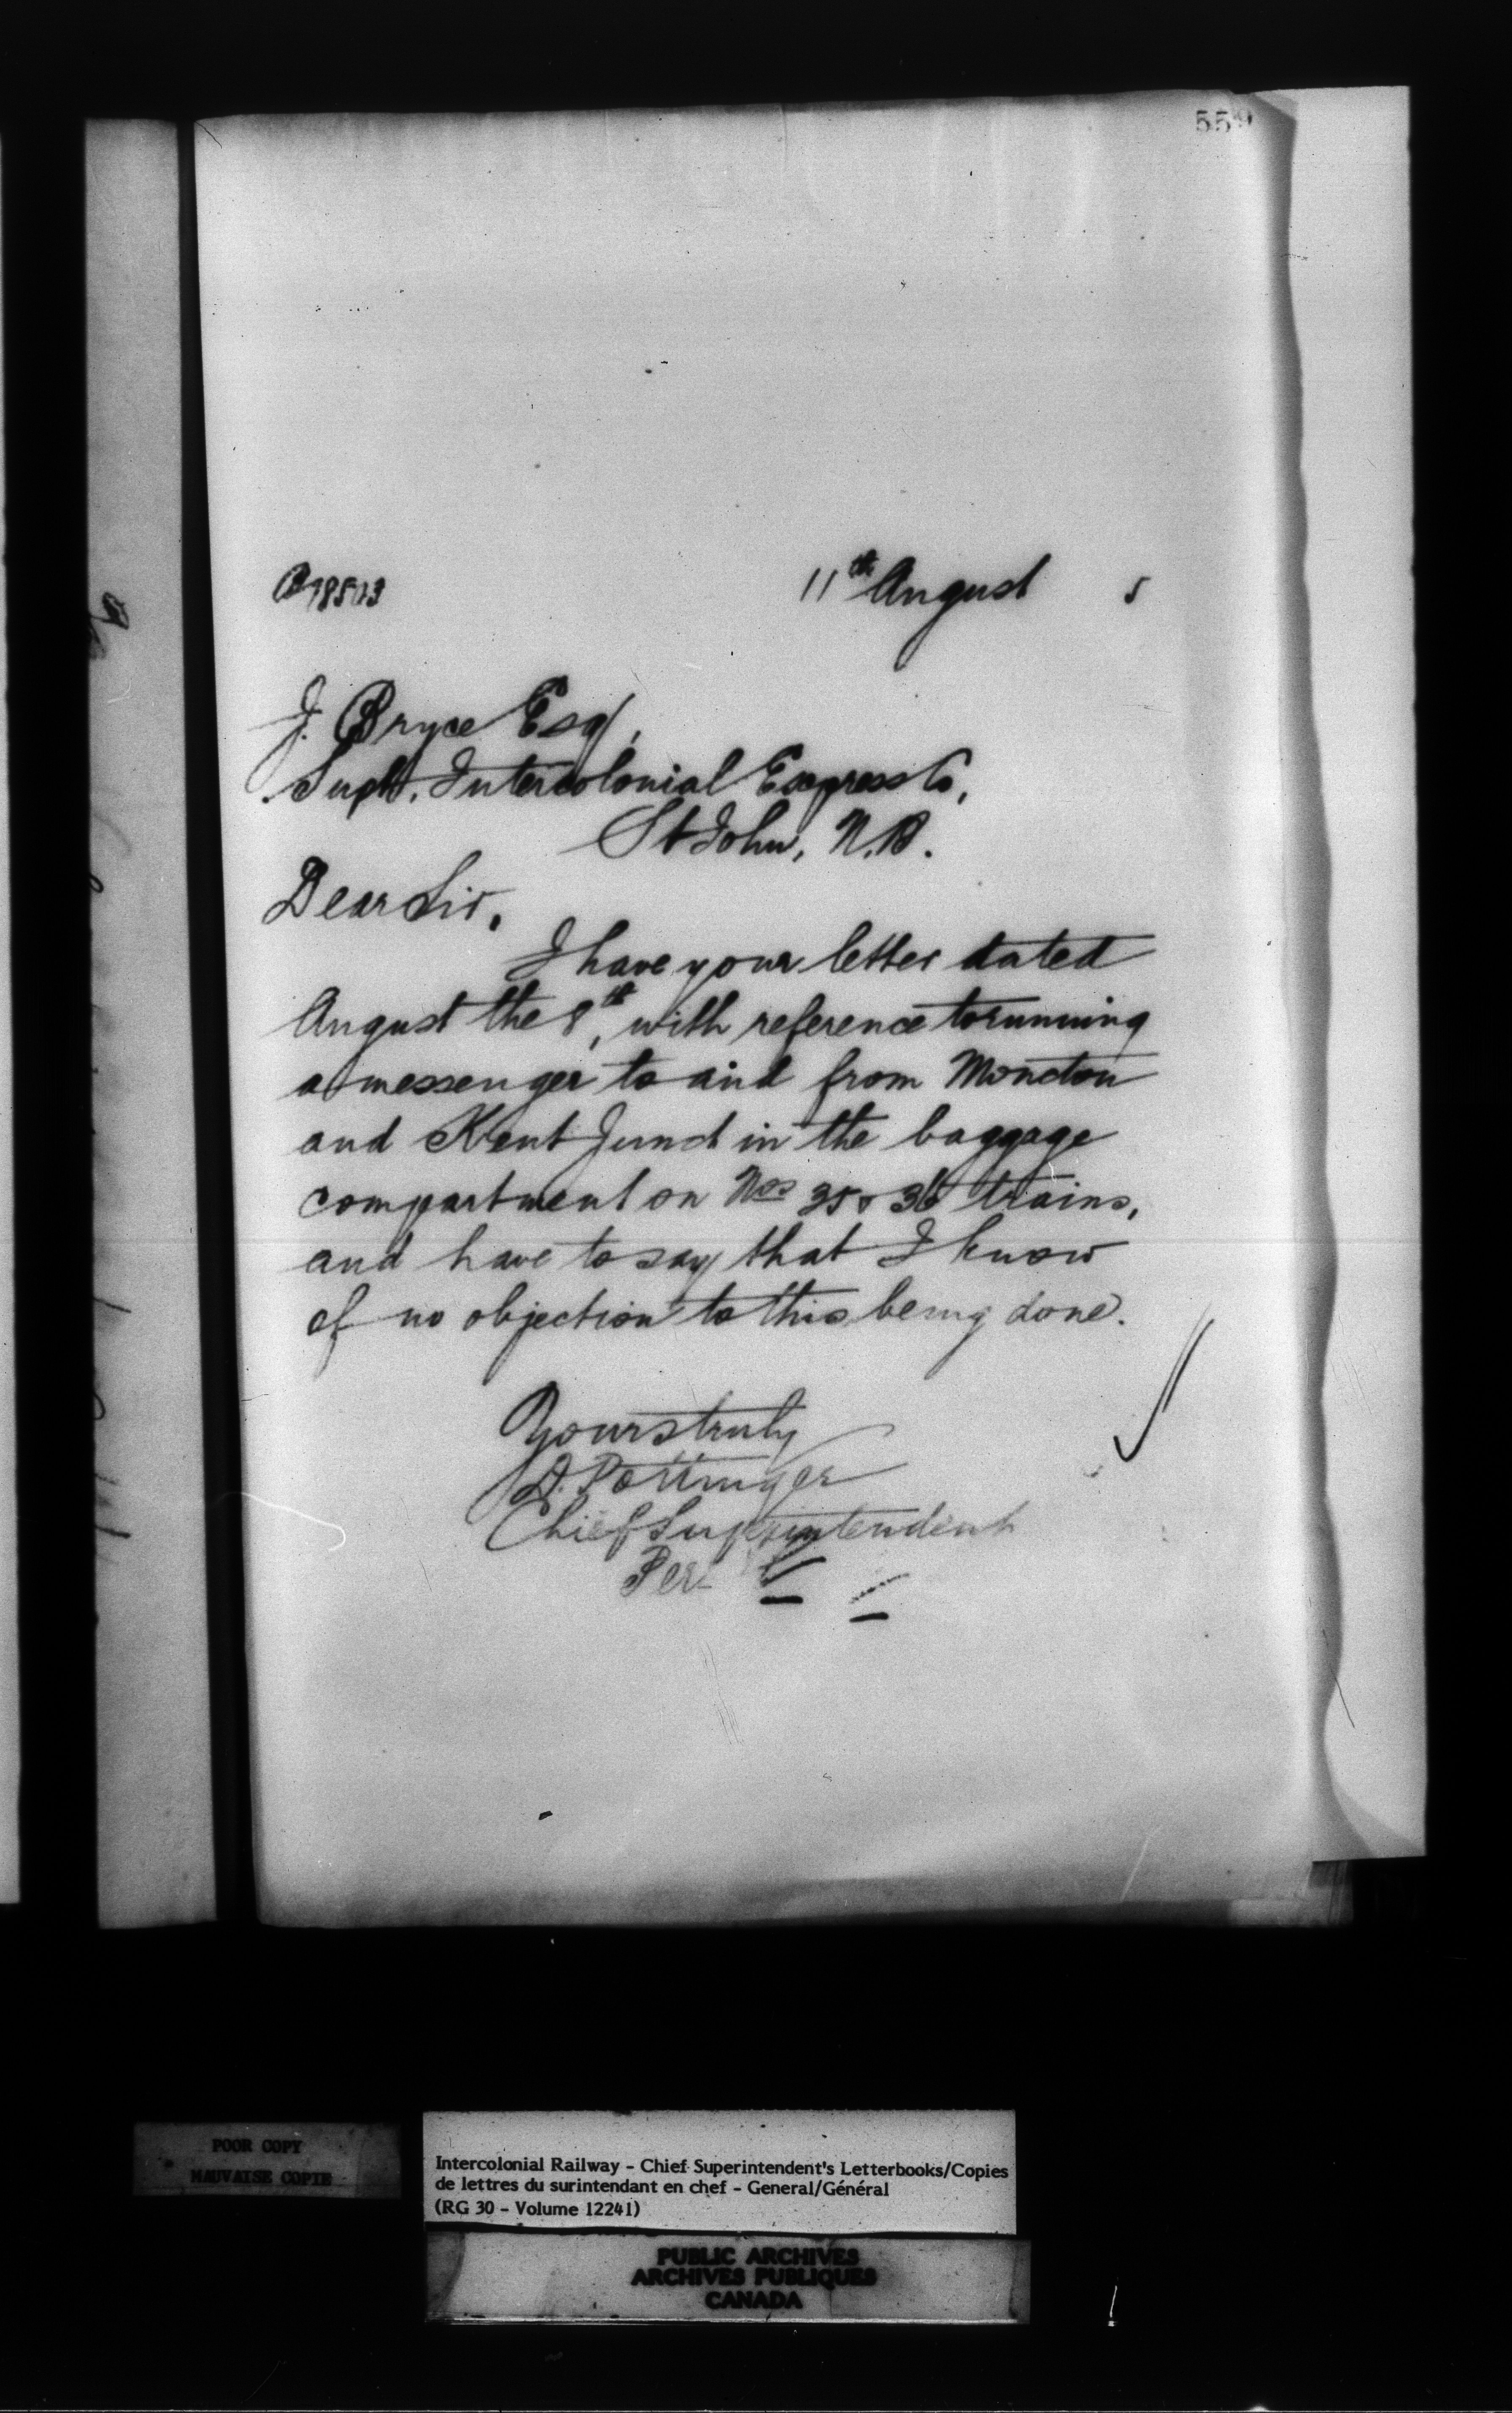 559
11th August 5
J. Bryce Esq,
Supt. Intercolonial Express Co,
St John, N.B.
Dear Sir,
I have your letter dated
August the 8th, with reference to running
a messenger to and from Moncton
and Kent Junct in the baggage
compartment on Nos 35 & 36 trains,
and have to say that I know
of no objection to this being done.
Yours truly
D. Pottinger
Chief Superintendent
Per
POOR COPY
MAUVAISE COPIE
Intercolonial Railway - Chief Superintendent's Letterbooks/Copies
de lettres du surintendant en chef - General/Général
(RG 30 - Volume 12241)
PUBLIC ARCHIVES
ARCHIVES PUBLIQUES
CANADA